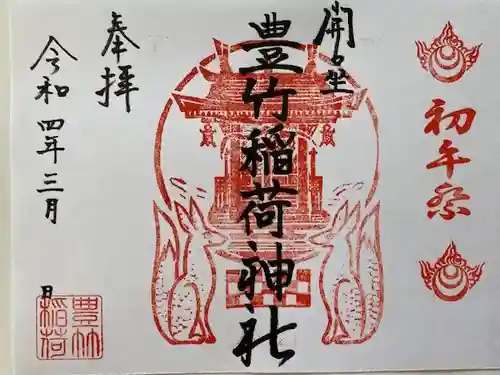 初午祭
開
豊竹稲荷神社
奉拝
令和四年三月 日
豊竹
稲荷